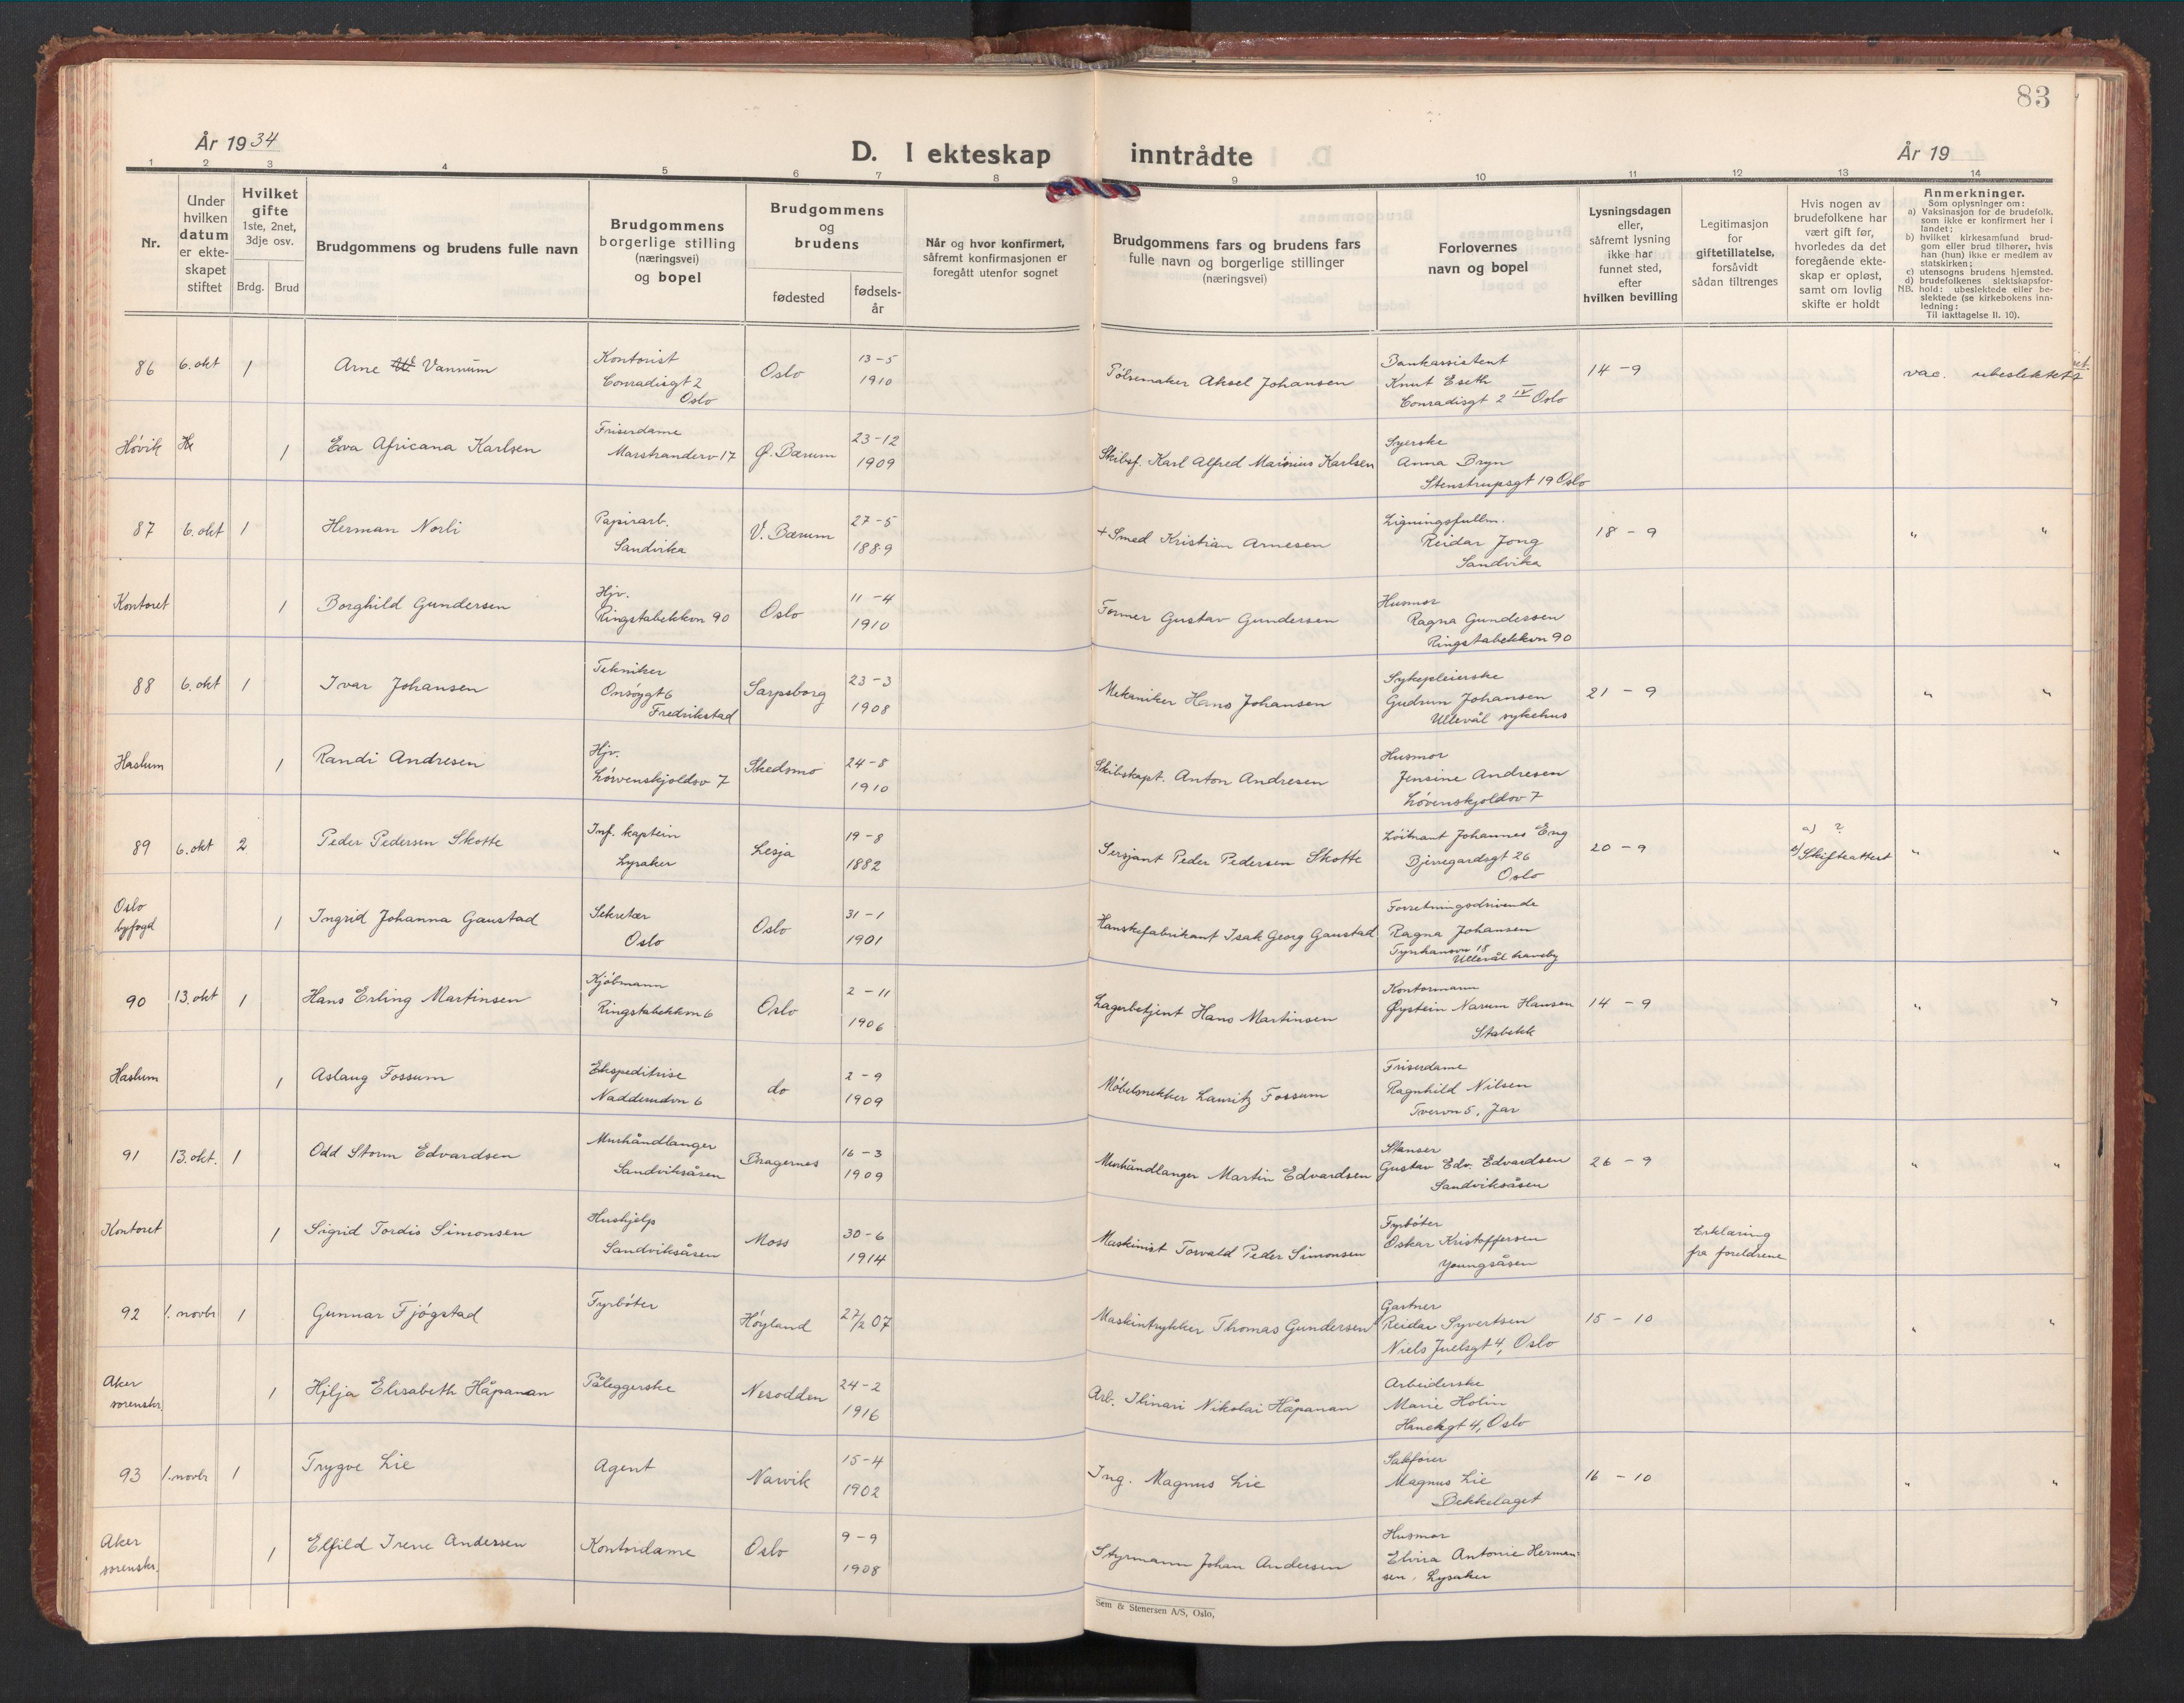 83
År 1934
D. I ekteskap inntrådte
År 19
1 2 3 4 5 6 7 8 9 10 11 12 13 14
Nr.
Under
hvilken
datum
er ekte-
skapet
stiftet
Hvilket
gifte
1ste, 2net,
3dje osv.
Brdg. Brud
Brudgommens og brudens fulle navn
Brudgommens
borgerlige stilling
(næringsvei)
og bopel
Brudgommens
og
brudens
fødested
fødsels-
år
Når og hvor konfirmert,
såfremt konfirmasjonen er
foregått utenfor sognet
Brudgommens fars og brudens fars
fulle navn og borgerlige stillinger
(næringsvei)
Forlovernes
navn og bopel
Lysningsdagen
eller,
såfremt lysning
ikke har
funnet sted,
efter
hvilken bevilling
Legitimasjon
for
giftetillatelse,
forsåvidt
sådan tiltrenges
Hvis nogen av
brudefolkene har
vært gift før,
hvorledes da det
foregående ekte-
skap er opløst,
samt om lovlig
skifte er holdt
Anmerkninger.
Som oplysninger om:
a) Vaksinasjon for de brudefolk.
som ikke er konfirmert her i
landet;
b) hvilket kirkesamfund brud-
gom eller brud tilhører, hvis
han (hun) ikke er medlem av
statskirken;
c) utensogns brudens hjemsted.
d) brudefolkenes slektskapsfor-
NB. hold: ubeslektede eller be-
slektede (se kirkebokens inn-
ledning:
Til iakttagelse II. 10).
86 6. okt 1 Arne Vannum
Kontorist
Conradisgt 2
Oslo
Oslo
13-5
1910
Pølsemaker Aksel Johansen
Bankassistent
Knut Eseth
Conradisgt 2 IV Oslo
14-9
vac. ubeslektet
Høvik
1 Eva Africana Karlsen
Friserdame
Marstranderv 17
Ø. Bærum
23-12
1909
Skibsf. Karl Alfred Marinius Karlsen
Syerske
Anna Bryn
Stenstrupsgt 19 Oslo
87 6. okt 1 Herman Norli
Papirarb.
Sandvika
V. Bærum
27-5
1889
+ Smed Kristian Arnesen
Ligningsfullm.
Reidar Jong
Sandvika
18-9
" "
Kontoret
1 Borghild Gundersen
Hjv.
Ringstabekkvn 90
Oslo
11-4
1910
Former Gustav Gundersen
Husmor
Ragna Gundersen
Ringstabekkvn 90
88 6. okt 1 Ivar Johansen
Tekniker
Onsøygt 6
Fredrikstad
Sarpsborg
23-3
1908
Mekaniker Hans Johansen
Sykepleierske
Gudrun Johansen
Ullevål sykehus
21-9
" "
Haslum
1 Randi Andresen
Hjv.
Løvenskjoldsv 7
Skedsmo
24-8
1910
Skibskapt. Anton Andresen
Husmor
Jensine Andresen
Løvenskjoldsv 7
89 6. okt 2 Peder Pedersen Skotte
Inf. kaptein
Lysaker
Lesja
19-8
1882
Sersjant Peder Pedersen Skotte
Løitnant Johannes Eng
Bjerregardsgt 26
Oslo
20-9
a) ?
b) Skifteattest
" "
Oslo
byfogd
1 Ingrid Johanna Gaustad
Sekretær
Oslo
Oslo
31-1
1901
Hanskefabrikant Isak Georg Gaustad
Forretningsdrivende
Ragna Johansen
18
Ullevål haveby
90 13. okt 1 Hans Erling Martinsen
Kjøbmann
Ringstabekkvn 6
Oslo
2-11
1906
Lagerbetjent Hans Martinsen
Kontormann
Øystein Narum Hansen
Stabekk
14-9
" "
Haslum
1 Aslaug Fossum
Ekspeditrise
Nadderudvn 6
do
2-9
1909
Møbelsnekker Lauritz Fossum
Friserdame
Ragnhild Nilsen
Tvervn 5, Jar
91 13. okt. 1 Odd Storm Edvardsen
Murhåndlanger
Sandviksåsen
Bragernes
16-3
1909
Murhåndlanger Martin Edvardsen
Stanser
Gustav Edv. Edvardsen
Sandviksåsen
26-9
" "
Kontoret
1 Sigrid Tordis Simonsen
Hushjelp
Sandviksåsen
Moss
30-6
1914
Maskinist Torvald Peder Simonsen
Fyrbøter
Oskar Kristoffersen
Youngsåsen
Erklæring
fra foreldrene
92 1. novbr 1 Gunnar Fjøgstad
Fyrbøter
Høyland
27/2 07
Maskintrykker Thomas Gundersen
Gartner
Reidar Syvertsen
Niels Juelsgt 4, Oslo
15-10
" "
Aker
sorenskr.
1 Hilja Elisabeth Håpanan
Påleggerske
Nesodden
24-2
1916
Arb. Ilinari Nikolai Håpanan
Arbeiderske
Marie Holin
4, Oslo
93 1. novbr 1 Trygve Lie
Agent
Narvik
15-4
1902
Ing. Magnus Lie
Sakfører
Magnus Lie
Bekkelaget
16-10
" "
Aker
sorenskr.
1 Elfild Irene Andersen
Kontordame
Oslo
9-9
1908
Styrmann Johan Andersen
Husmor
Elvira Antonie Herman-
sen, Lysaker
Sem & Stenersen A/S, Oslo,